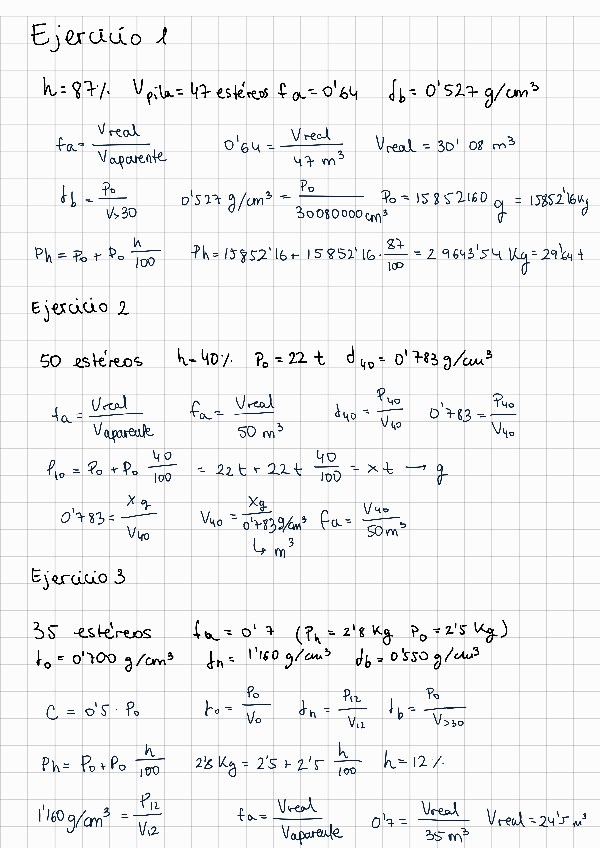 Ejercicio 1
h = 87% Vpila = 47 estéreos fa = 0'64 db = 0'527 g/cm³
fa = Vreal / Vaparente 0'64 = Vreal / 47 m³ Vreal = 30'08 m³
db = P₀ / V>30 0'527 g/cm³ = P₀ / 30080000 cm³ P₀ = 15852160 g = 15852'16 Kg
Ph = P₀ + P₀ h/100 Ph = 15852'16 + 15852'16 · 87/100 = 29643'54 Kg = 29'64 t
Ejercicio 2
50 estéreos h = 40% P₀ = 22 t d₄₀ = 0'783 g/cm³
fa = Vreal / Vaparente fa = Vreal / 50 m³ d₄₀ = P₄₀ / V₄₀ 0'783 = P₄₀ / V₄₀
P₁₀ = P₀ + P₀ 40/100 = 22 t + 22 t 40/100 = x t → g
0'783 = x g / V₄₀ V₄₀ = x g / 0'783 g/cm³ fa = V₄₀ / 50 m³
↳ m³
Ejercicio 3
35 estéreos fa = 0'7 (Ph = 2'8 Kg P₀ = 2'5 Kg)
d₀ = 0'700 g/cm³ dn = 1'160 g/cm³ db = 0'550 g/cm³
C = 0'5 · P₀ d₀ = P₀ / V₀ dn = P₁₂ / V₁₂ db = P₀ / V>30
Ph = P₀ + P₀ h/100 2'8 Kg = 2'5 + 2'5 h/100 h = 12%
1'160 g/cm³ = P₁₂ / V₁₂ fa = Vreal / Vaparente 0'7 = Vreal / 35 m³ Vreal = 24'5 m³